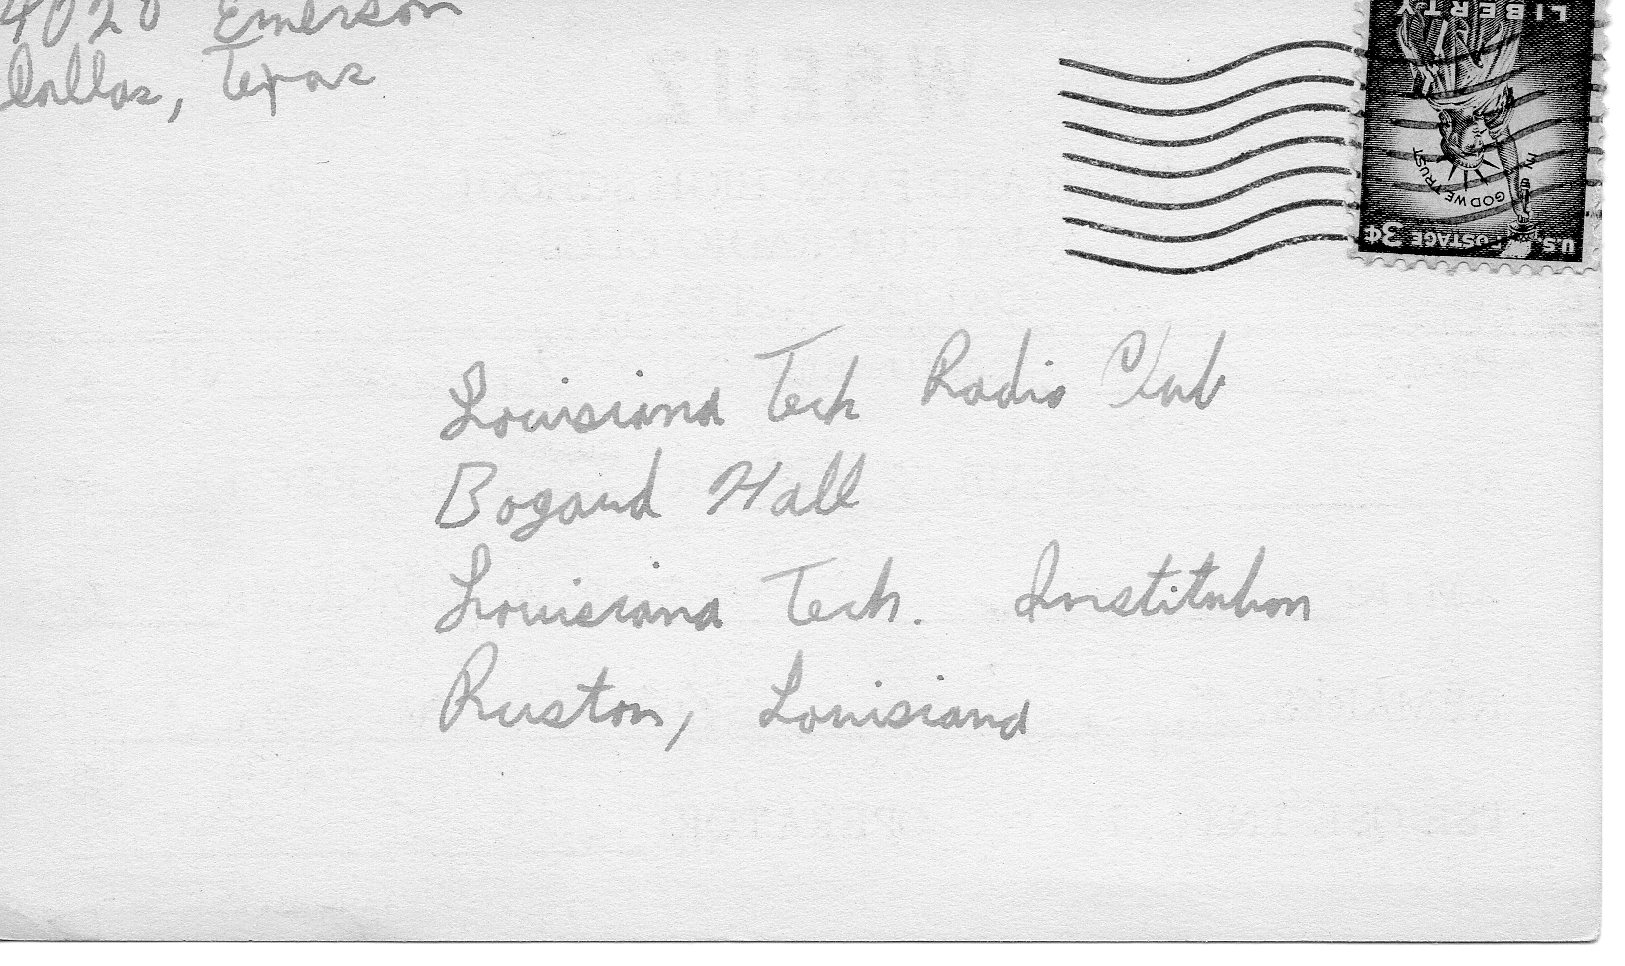 4020 Emerson
Dallas, Texas
LIBERTY
IN GOD WE TRUST
U.S. POSTAGE 3¢
Louisiana Tech Radio Club
Bogard Hall
Louisiana Tech. Institution
Ruston, Louisiana